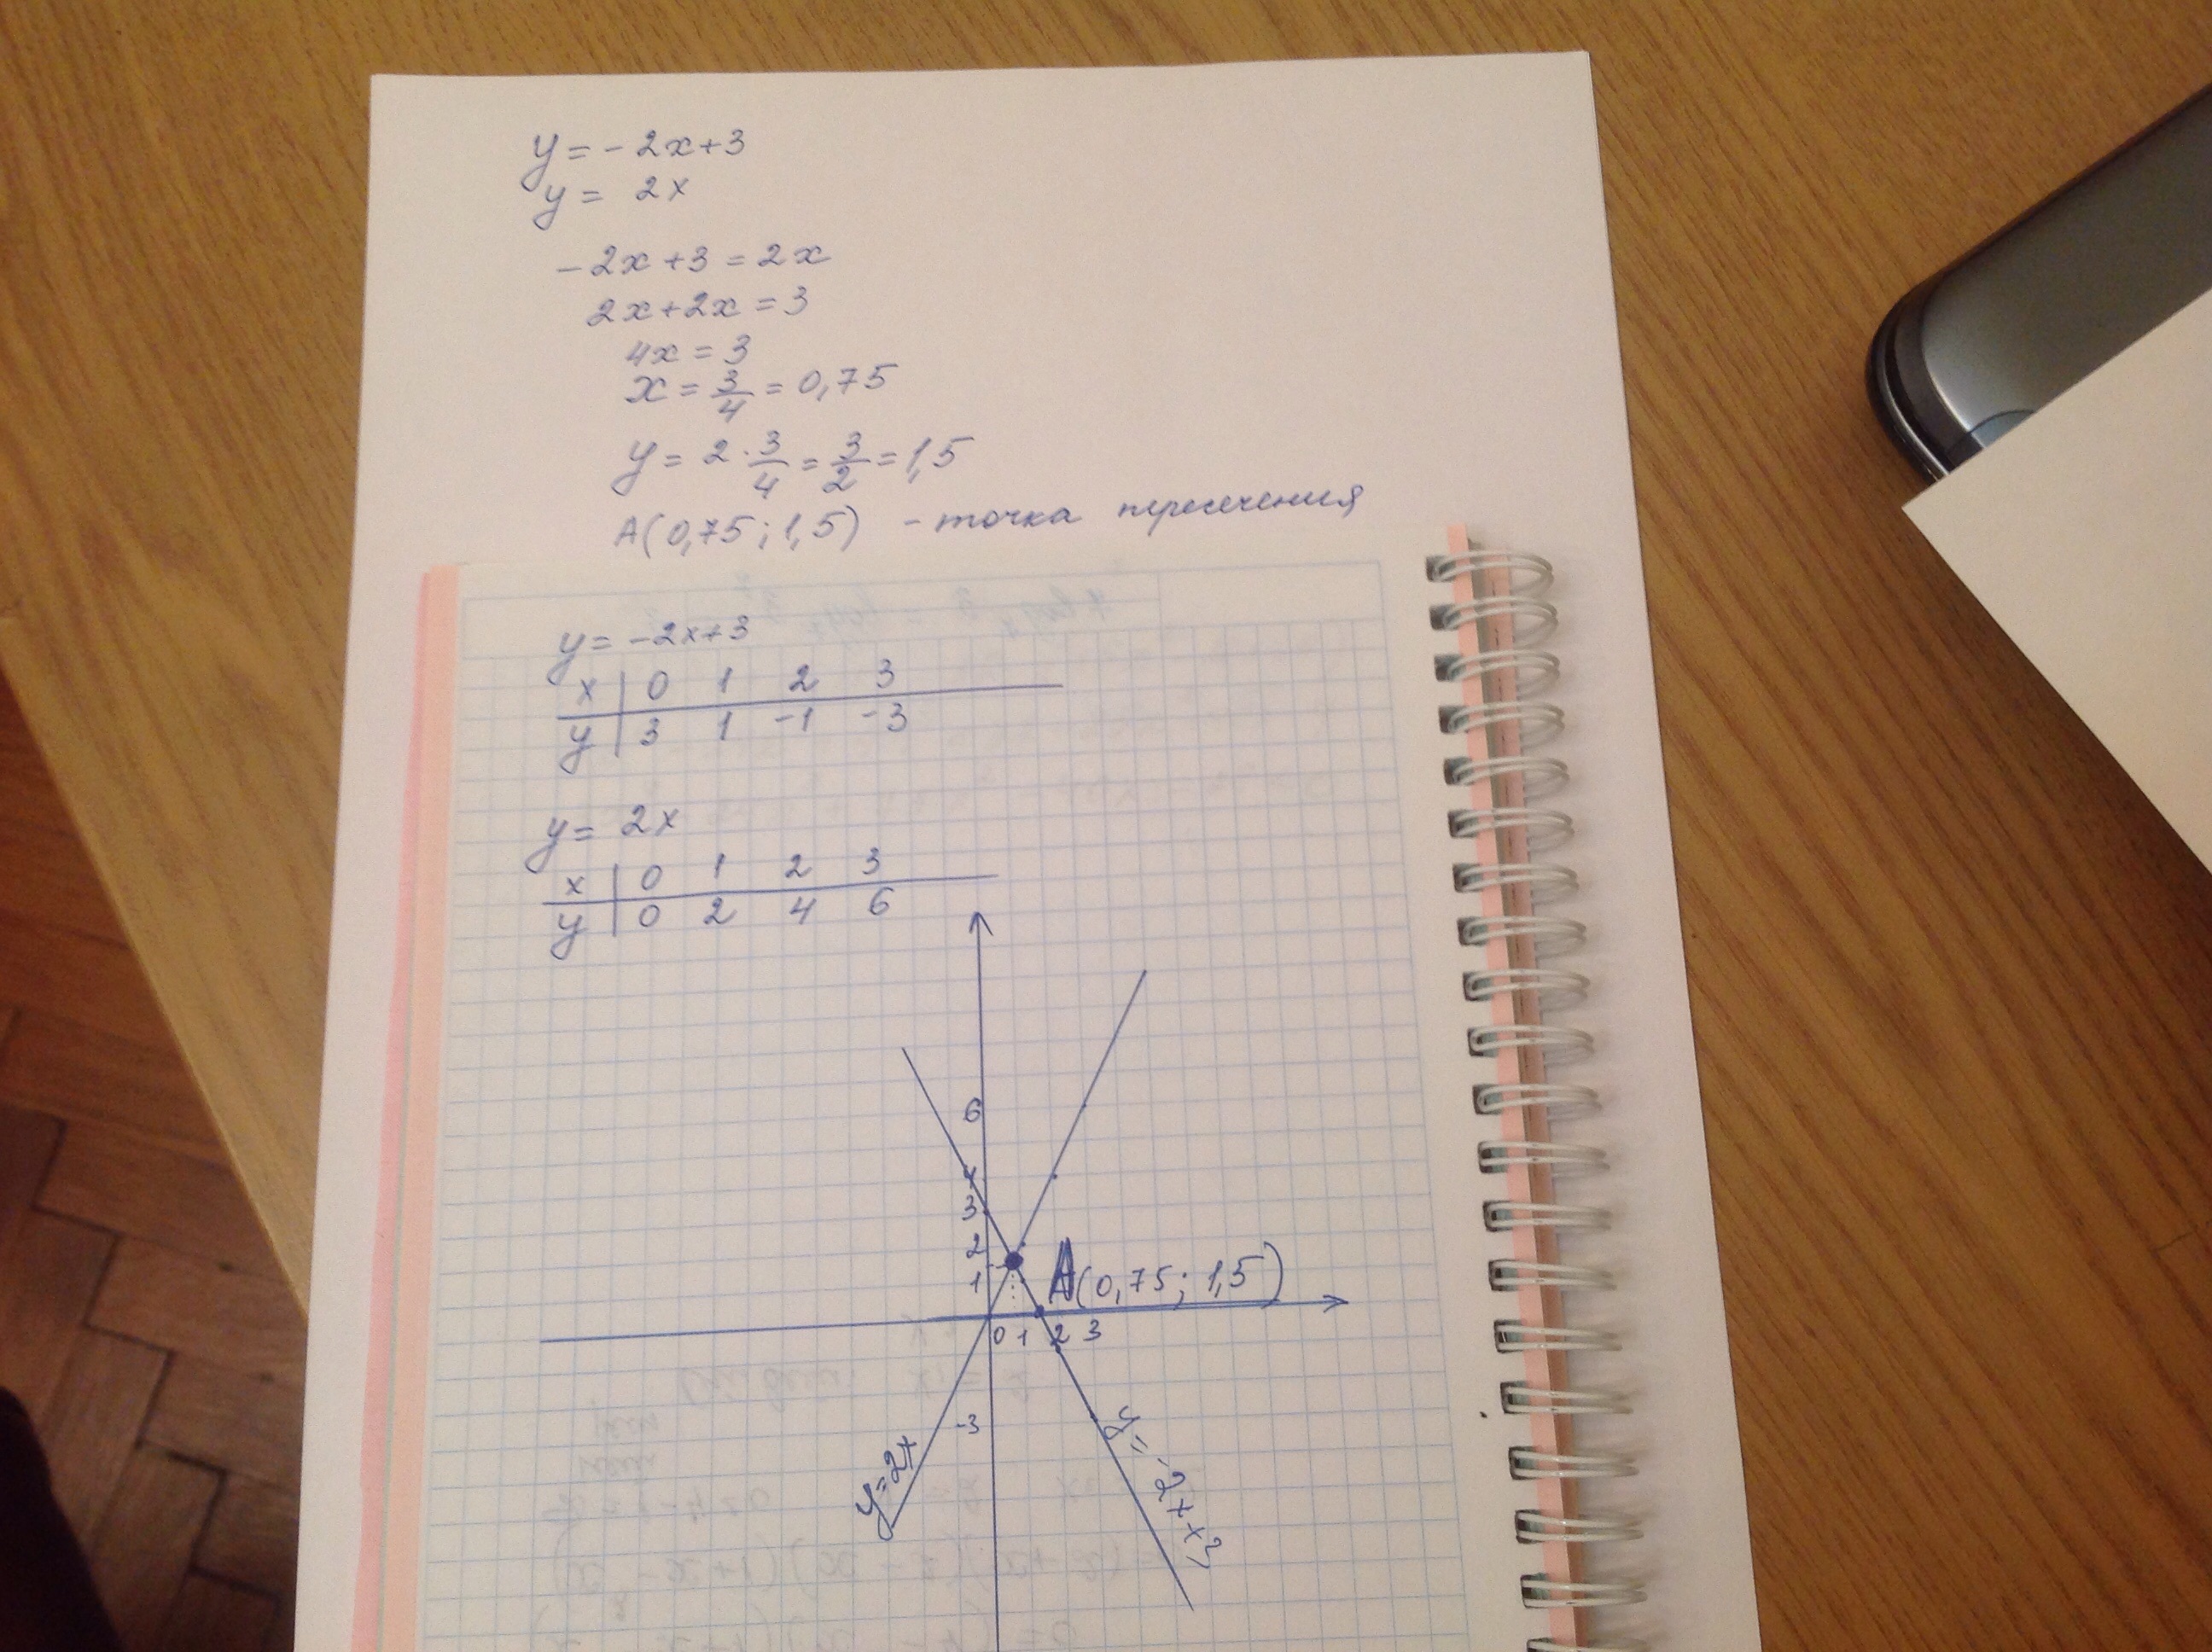 y = -2x+3
y = 2x
-2x+3 = 2x
2x+2x = 3
4x = 3
x = 3/4 = 0,75
y = 2·3/4 = 3/2 = 1,5
A(0,75; 1,5) - точка пересечения
y = -2x+3
x | 0 1 2 3
y | 3 1 -1 -3
y = 2x
x | 0 1 2 3
y | 0 2 4 6
6
4
3
2
1
A(0,75; 1,5)
0 1 2 3
-3
y=2x
y=-2x+3